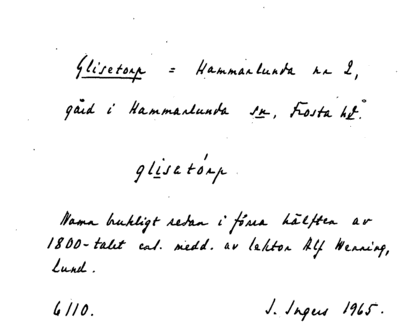 Glisetorp = Hammarlunda nr 2,
gård i Hammarlunda sn, Frosta hd.
glisetórp
Namn brukligt redan i förra hälften av
1800-talet enl. medd. av lektor Alf Wenning,
Lund.
6110. I. Ingers 1965.